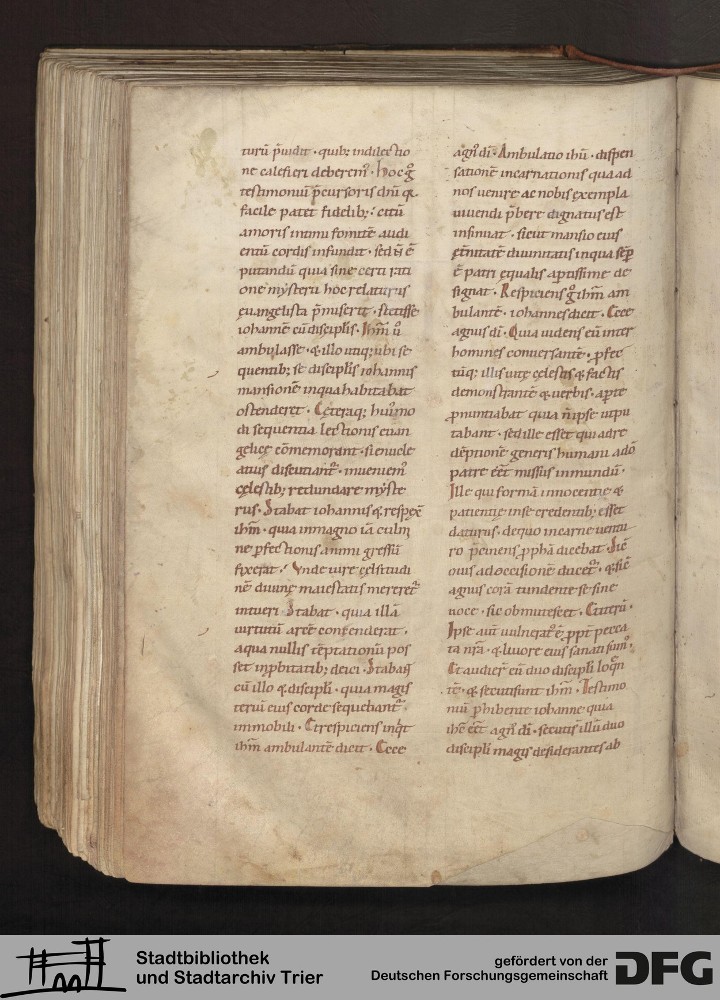 turū p̄uidit · quib; indilectio
ne calefieri deberem᷒ · hoc g̊
testimoniū p̄cursoris dn̄i q̨
facile patet fidelib; · cū tū
amoris intimi fomitē audi
entū cordis infundit · sed ñ ē
putandū quia sine certi rati
one mysterii hoc relaturus
euangelista p̄miserit · stetisse
iohannē cū discipl̄is · Ihm̄ ū
ambulasse · & illo utiq; ubi se
quentib; se discipl̄is iohannis
mansionē in qua habitabat
ostenderet · Cęteraq; hui᷒mo
di sequentia lectionis euan
gelicę cōmemorant · si enucle
atius discutiant᷑ · inueniem᷒
cęlestib; redundare myste
riis · Stabat iohannis & respex̄
ihm̄ · quia in magno iā culm̄
ne p̱fectionis animi gressū
fixerat · Vnde iure celsitudi
nē diuinę maiestatis mereret᷑
intueri · Stabat · quia illā
uirtutū arcē conscenderat ·
a qua nullis tēptationū pos
set inp̱bitatib; deici · Stabaʒ
cū illo & discipl̄i · quia magis
teriū eius corde sequebant᷑
immobili · Et respiciens inq̄t
ihm̄ ambulantē dicit · Ecce
agn᷒ dī · Ambulatio ihū · dispen
sationē incarnationis qua ad
nos uenire ac nobis exempla
uiuendi p̄bere dignatus est
insinuat · sicut mansio eius
ęt̄nitatē diuinitatis in qua semp̱
ē patri ęqualis aptissime de
signat · Respiciens g̊ ihm̄ am
bulantē · iohannes dicit · Ecce
agnus dī · Quia uidens eū inter
homines conuersantē · p̱fec
tūq; illis uitę cęlestis & factis
demonstrantē & uerbis · ap̱te
p̱nuntiabat quia n̄ ipse ut pu
tabant · sed ille esset qui ad re
dēptionē generis humani a dō
patre eēt missus in mundū ·
Ille qui formā innocentię &
patientię in se credentib; esset
daturus · de quo in carne uentu
ro p̄cinens p̱pha dicebat · Sic̄
ouis ad occisionē ducet᷑ · & sic̄
agnus corā tundente se sine
uoce · sic obmutescet · Et iterū ·
Ipse aūt uulnerat᷒ ē p̱pt̄ pecca
ta nr̄a · & liuore eius sanati sum᷒ ·
Et audier̄ eū duo discipl̄i loq̄n
tē · & secuti sunt ihm̄ · Testimo
niū p̱hibente iohanne quia
ihc̄ eēt agn᷒ dī · secuti s̄ illū duo
discipl̄i magis desiderantes ab
Stadtbibliothek
und Stadtarchiv Trier
gefördert von der
Deutschen Forschungsgemeinschaft
DFG